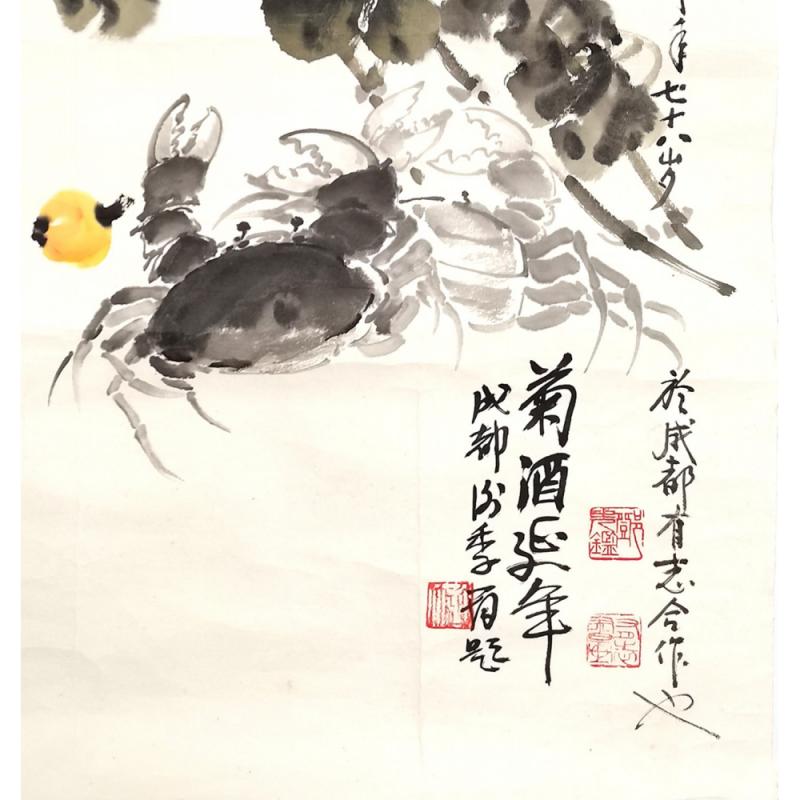 年七十八岁
於成都有志合作也
菊酒延年
成都谢季筠题